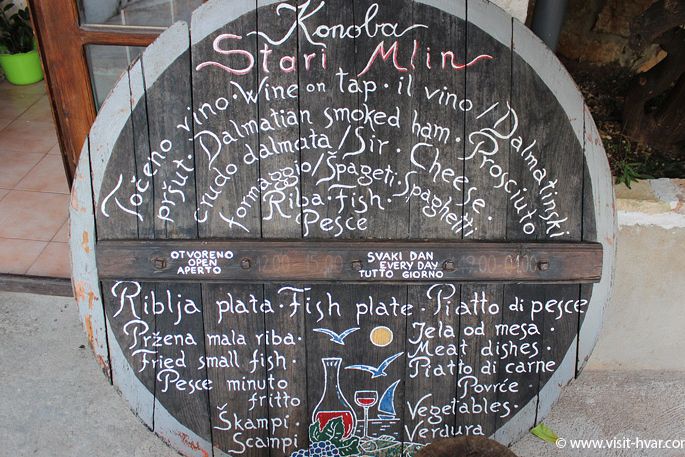 Konoba
Stari Mlin
Točeno vino · Wine on tap · il vino / Dalmatinski
pršut · Dalmatian smoked ham · Prosciuto
crudo dalmata / Sir · Cheese ·
formaggio / Špageti · Spaghetti
Riba · Fish ·
Pesce
OTVORENO
OPEN
APERTO
12:00-15:00
SVAKI DAN
EVERY DAY
TUTTO GIORNO
Riblja plata · Fish plate · Piatto di pesce
Pržena mala riba ·
Fried small fish ·
Pesce minuto
fritto
Škampi ·
Scampi
Jela od mesa ·
Meat dishes ·
Piatto di carne
Povrće ·
Vegetables ·
Verdura
© www.visit-hvar.com